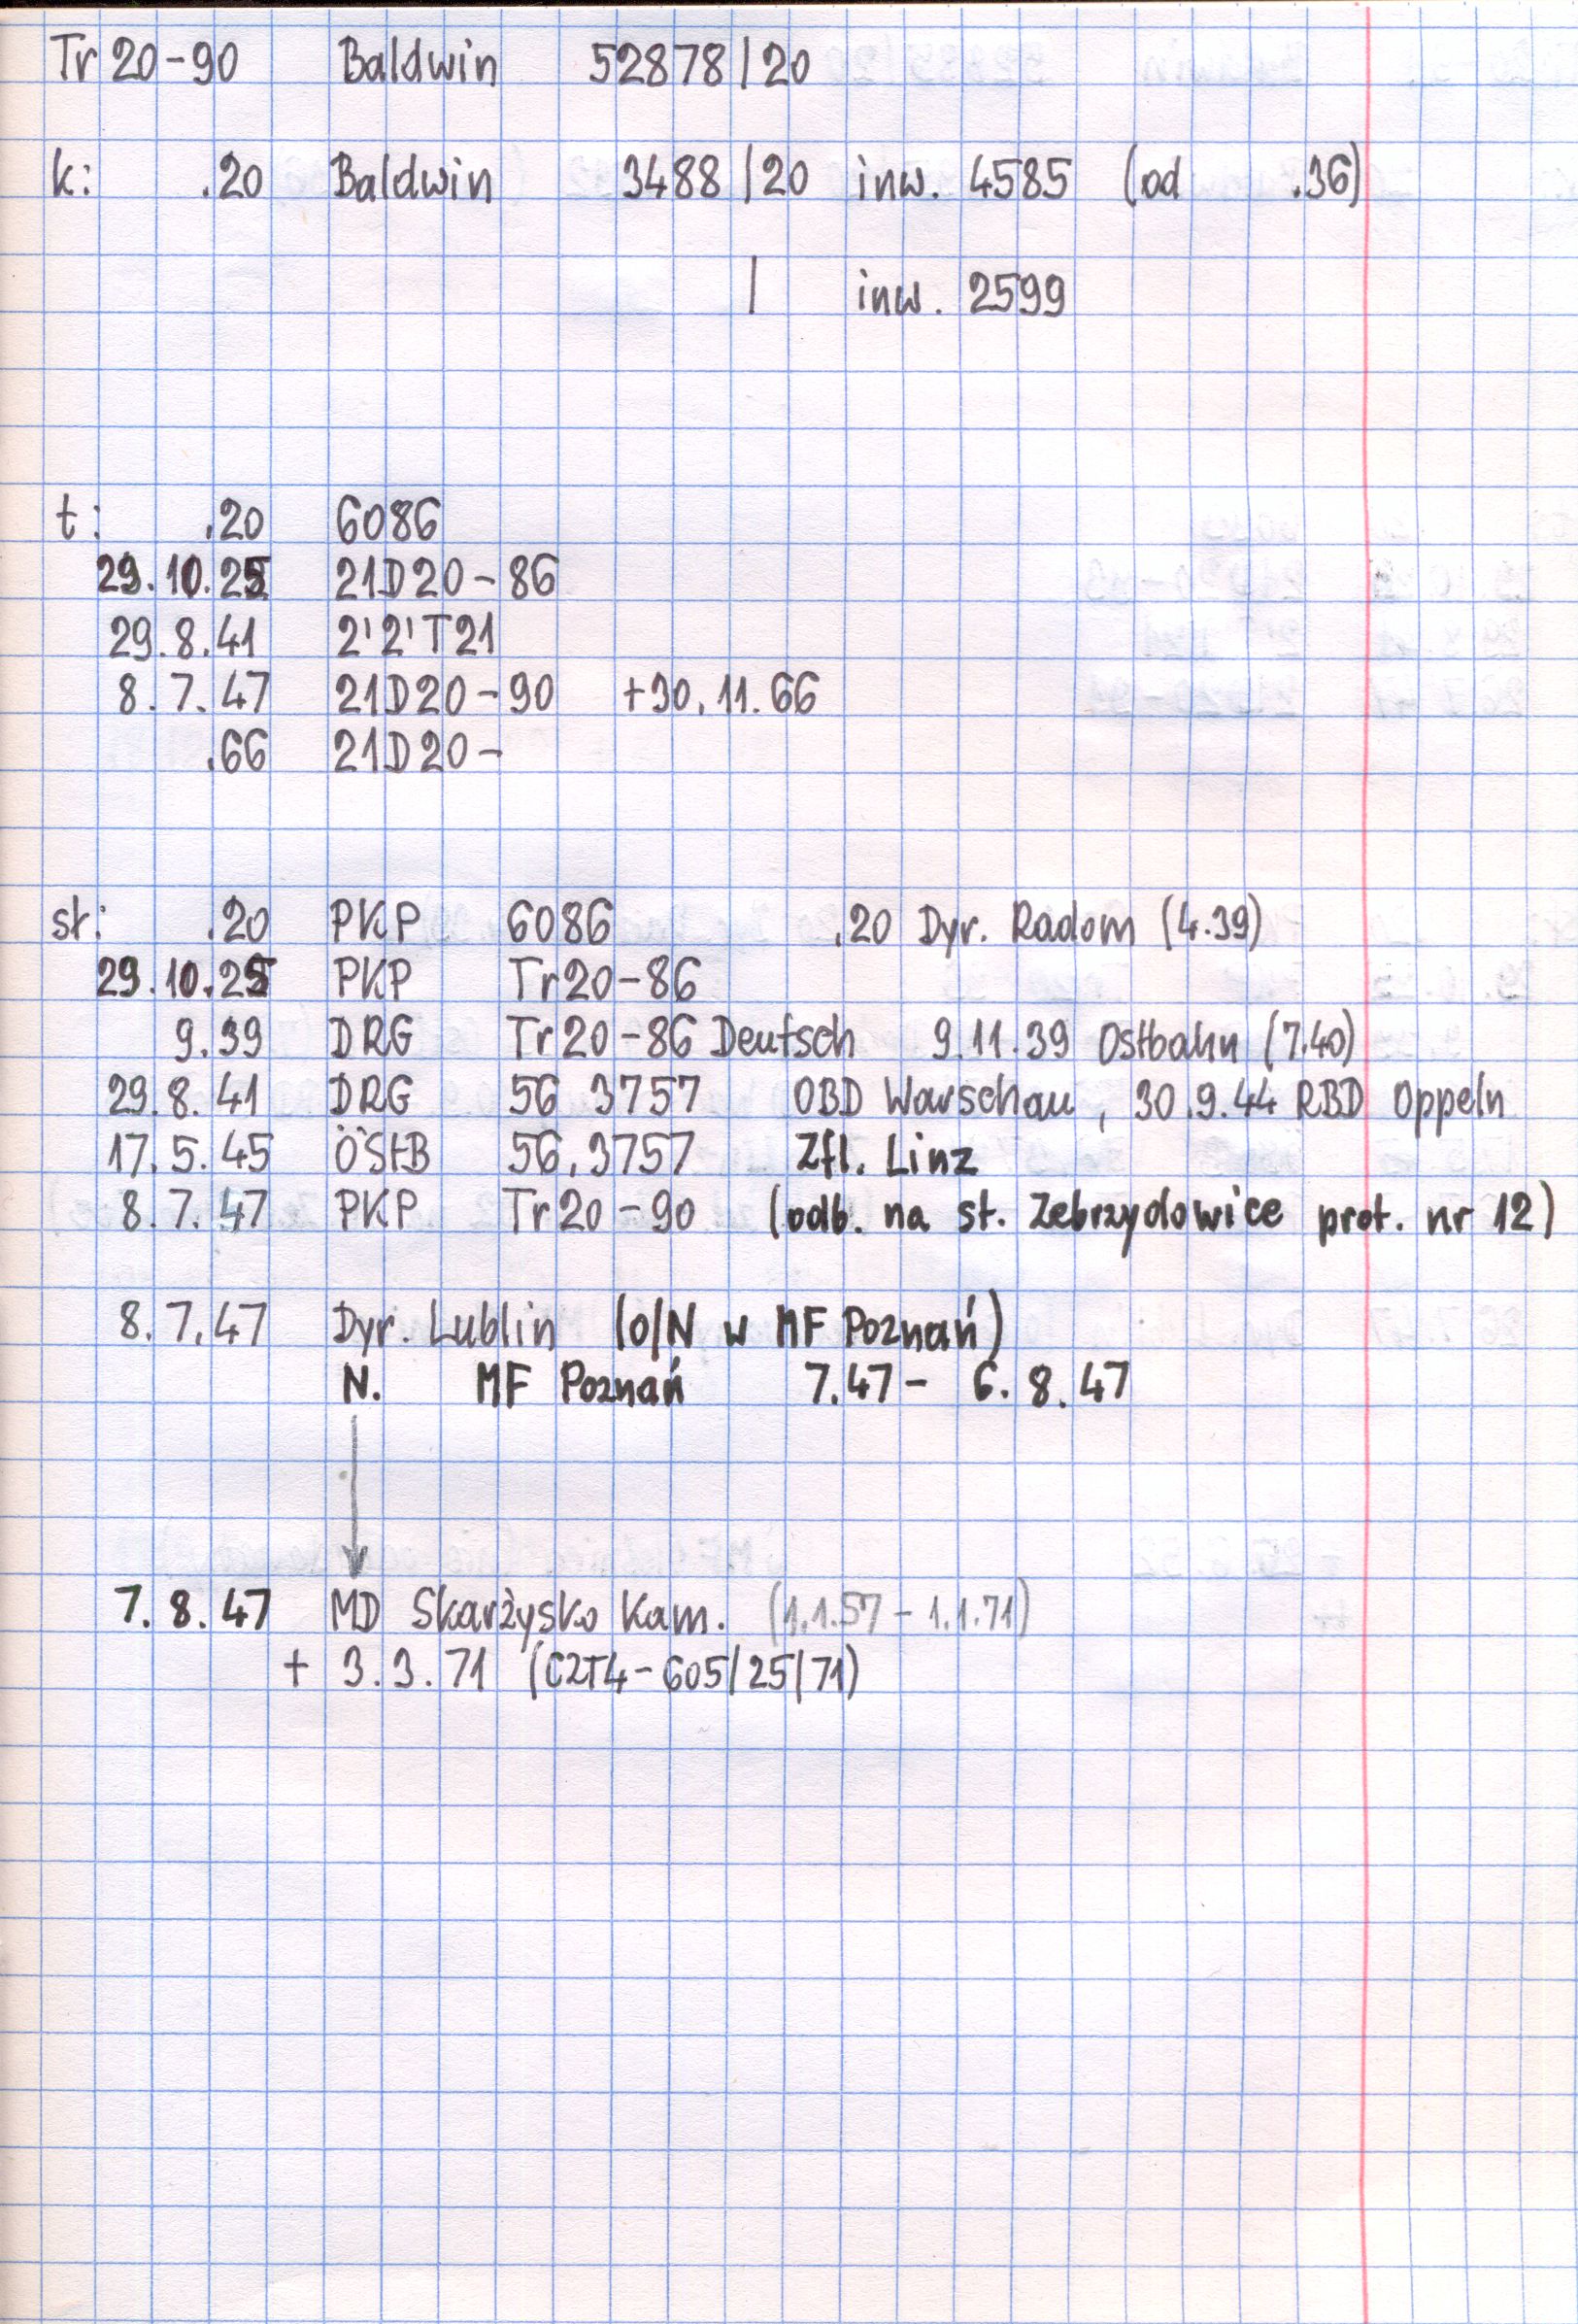 Tr 20-90 Baldwin 52878/20
k: .20 Baldwin 3488/20 inw. 4585 (od .36)
/ inw. 2599
t: .20 6086
29.10.25 21D20-86
29.8.41 2'2'T21
8.7.47 21D20-90 +30.11.66
.66 21D20-
st: .20 PKP 6086 .20 Dyr. Radom (4.39)
29.10.25 PKP Tr20-86
9.39 DRG Tr20-86 Deutsch 9.11.39 Ostbahn (7.40)
29.8.41 DRG 56 3757 OBD Warschau, 30.9.44 RBD Oppeln
17.5.45 ÖStB 56.3757 Zfl. Linz
8.7.47 PKP Tr20-90 (odb. na st. Zebrzydowice prot. nr 12)
8.7.47 Dyr. Lublin (o/N w MF Poznań)
N. MF Poznań 7.47- 6.8.47
7.8.47 MD Skarżysko Kam. (1.1.57 - 1.1.71)
+ 3.3.71 (C2T4-605/25/71)